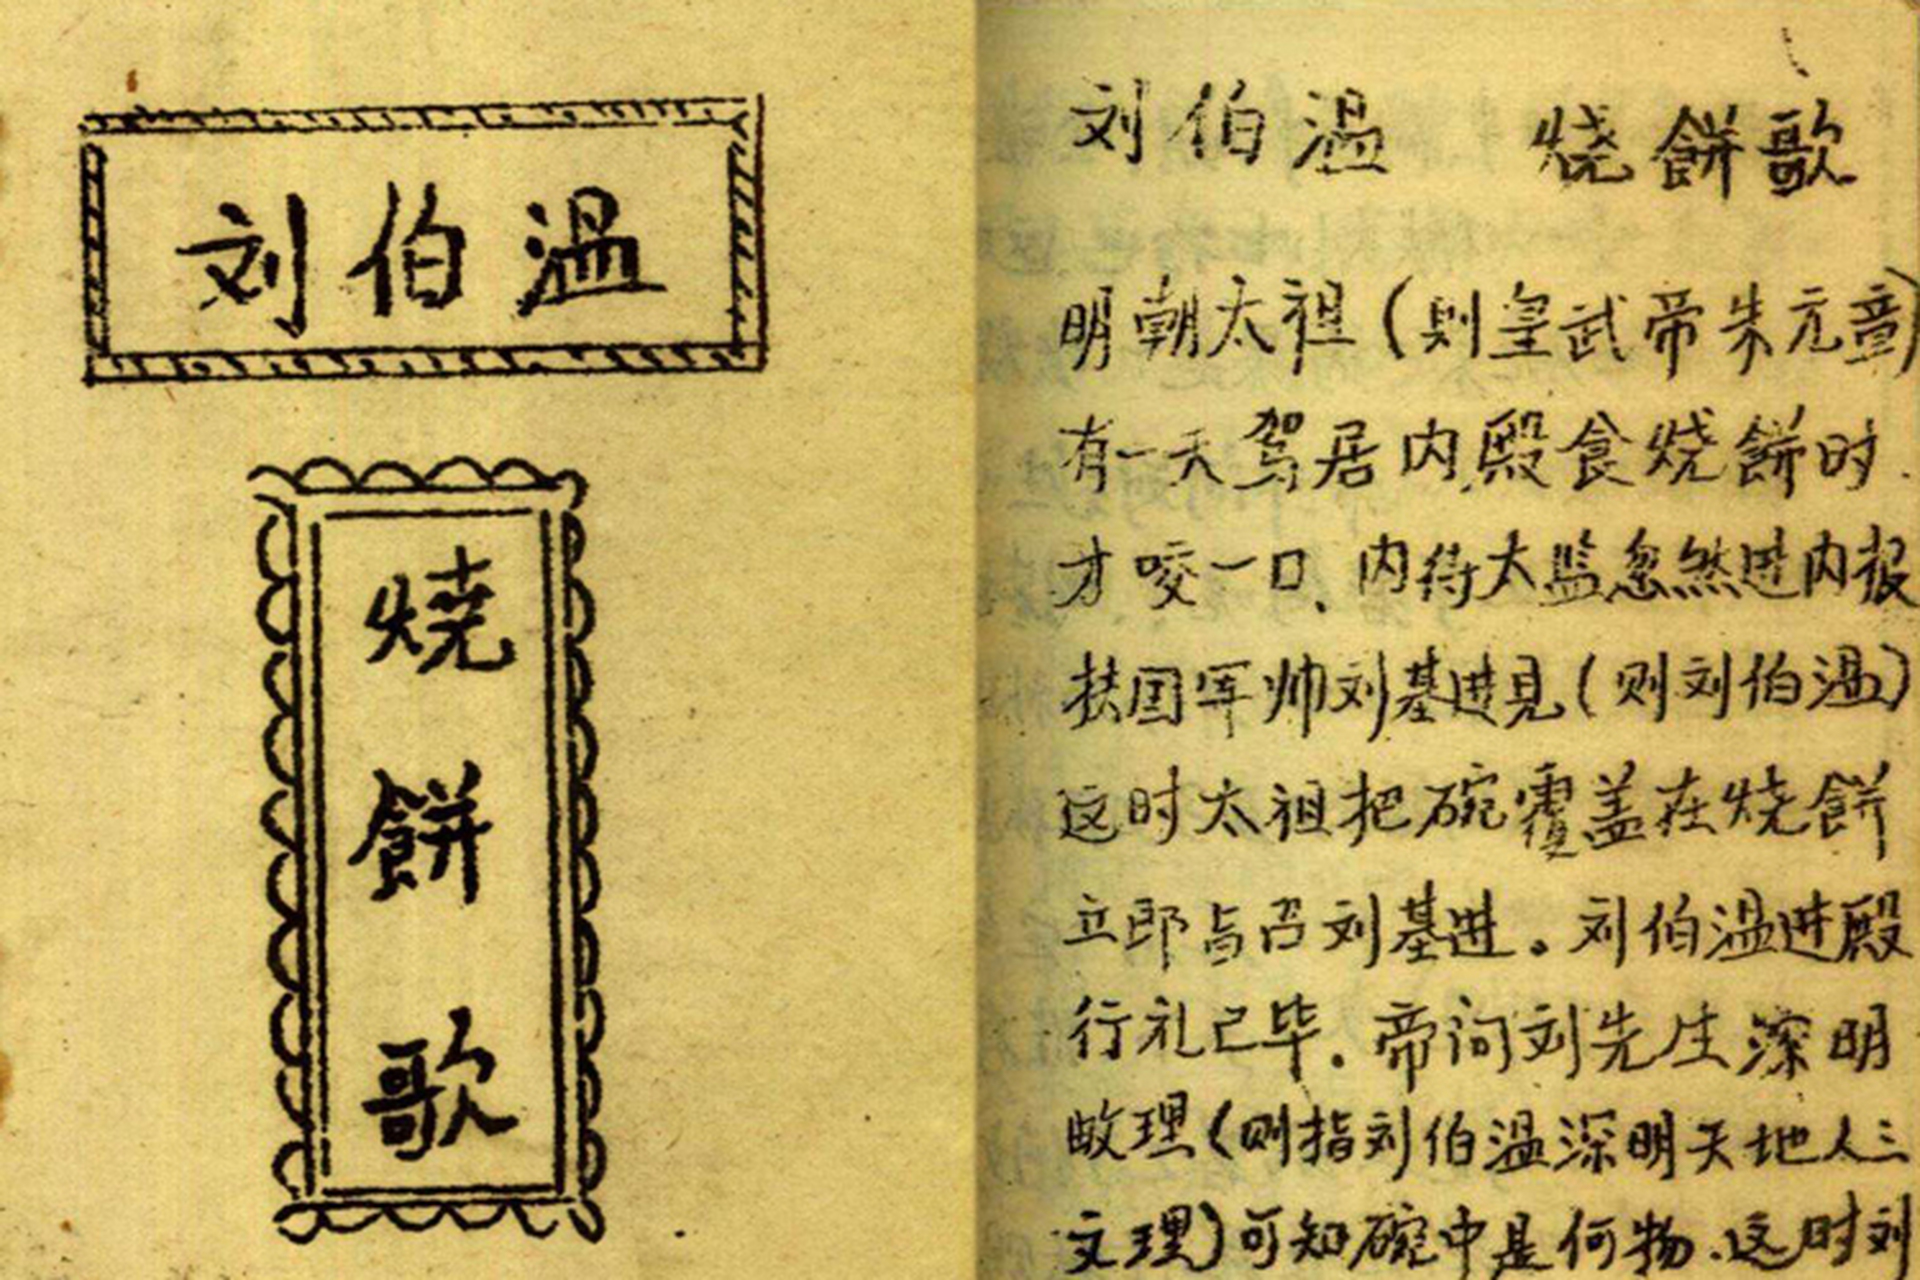 刘伯温
燒
餅
歌
刘伯温 烧餅歌
明朝太祖(则皇武帝朱元章)
有一天驾居内殿食烧餅时.
才咬一口、内待太监忽然进内报
扶国军帅刘基进見(则刘伯温)
这时太祖把碗覆盖在烧餅
立即与召刘基进。刘伯温进殿
行礼已毕.帝问刘先生深明
理(则指刘伯温深明天地人三
文理)可知碗中是何物.这时刘